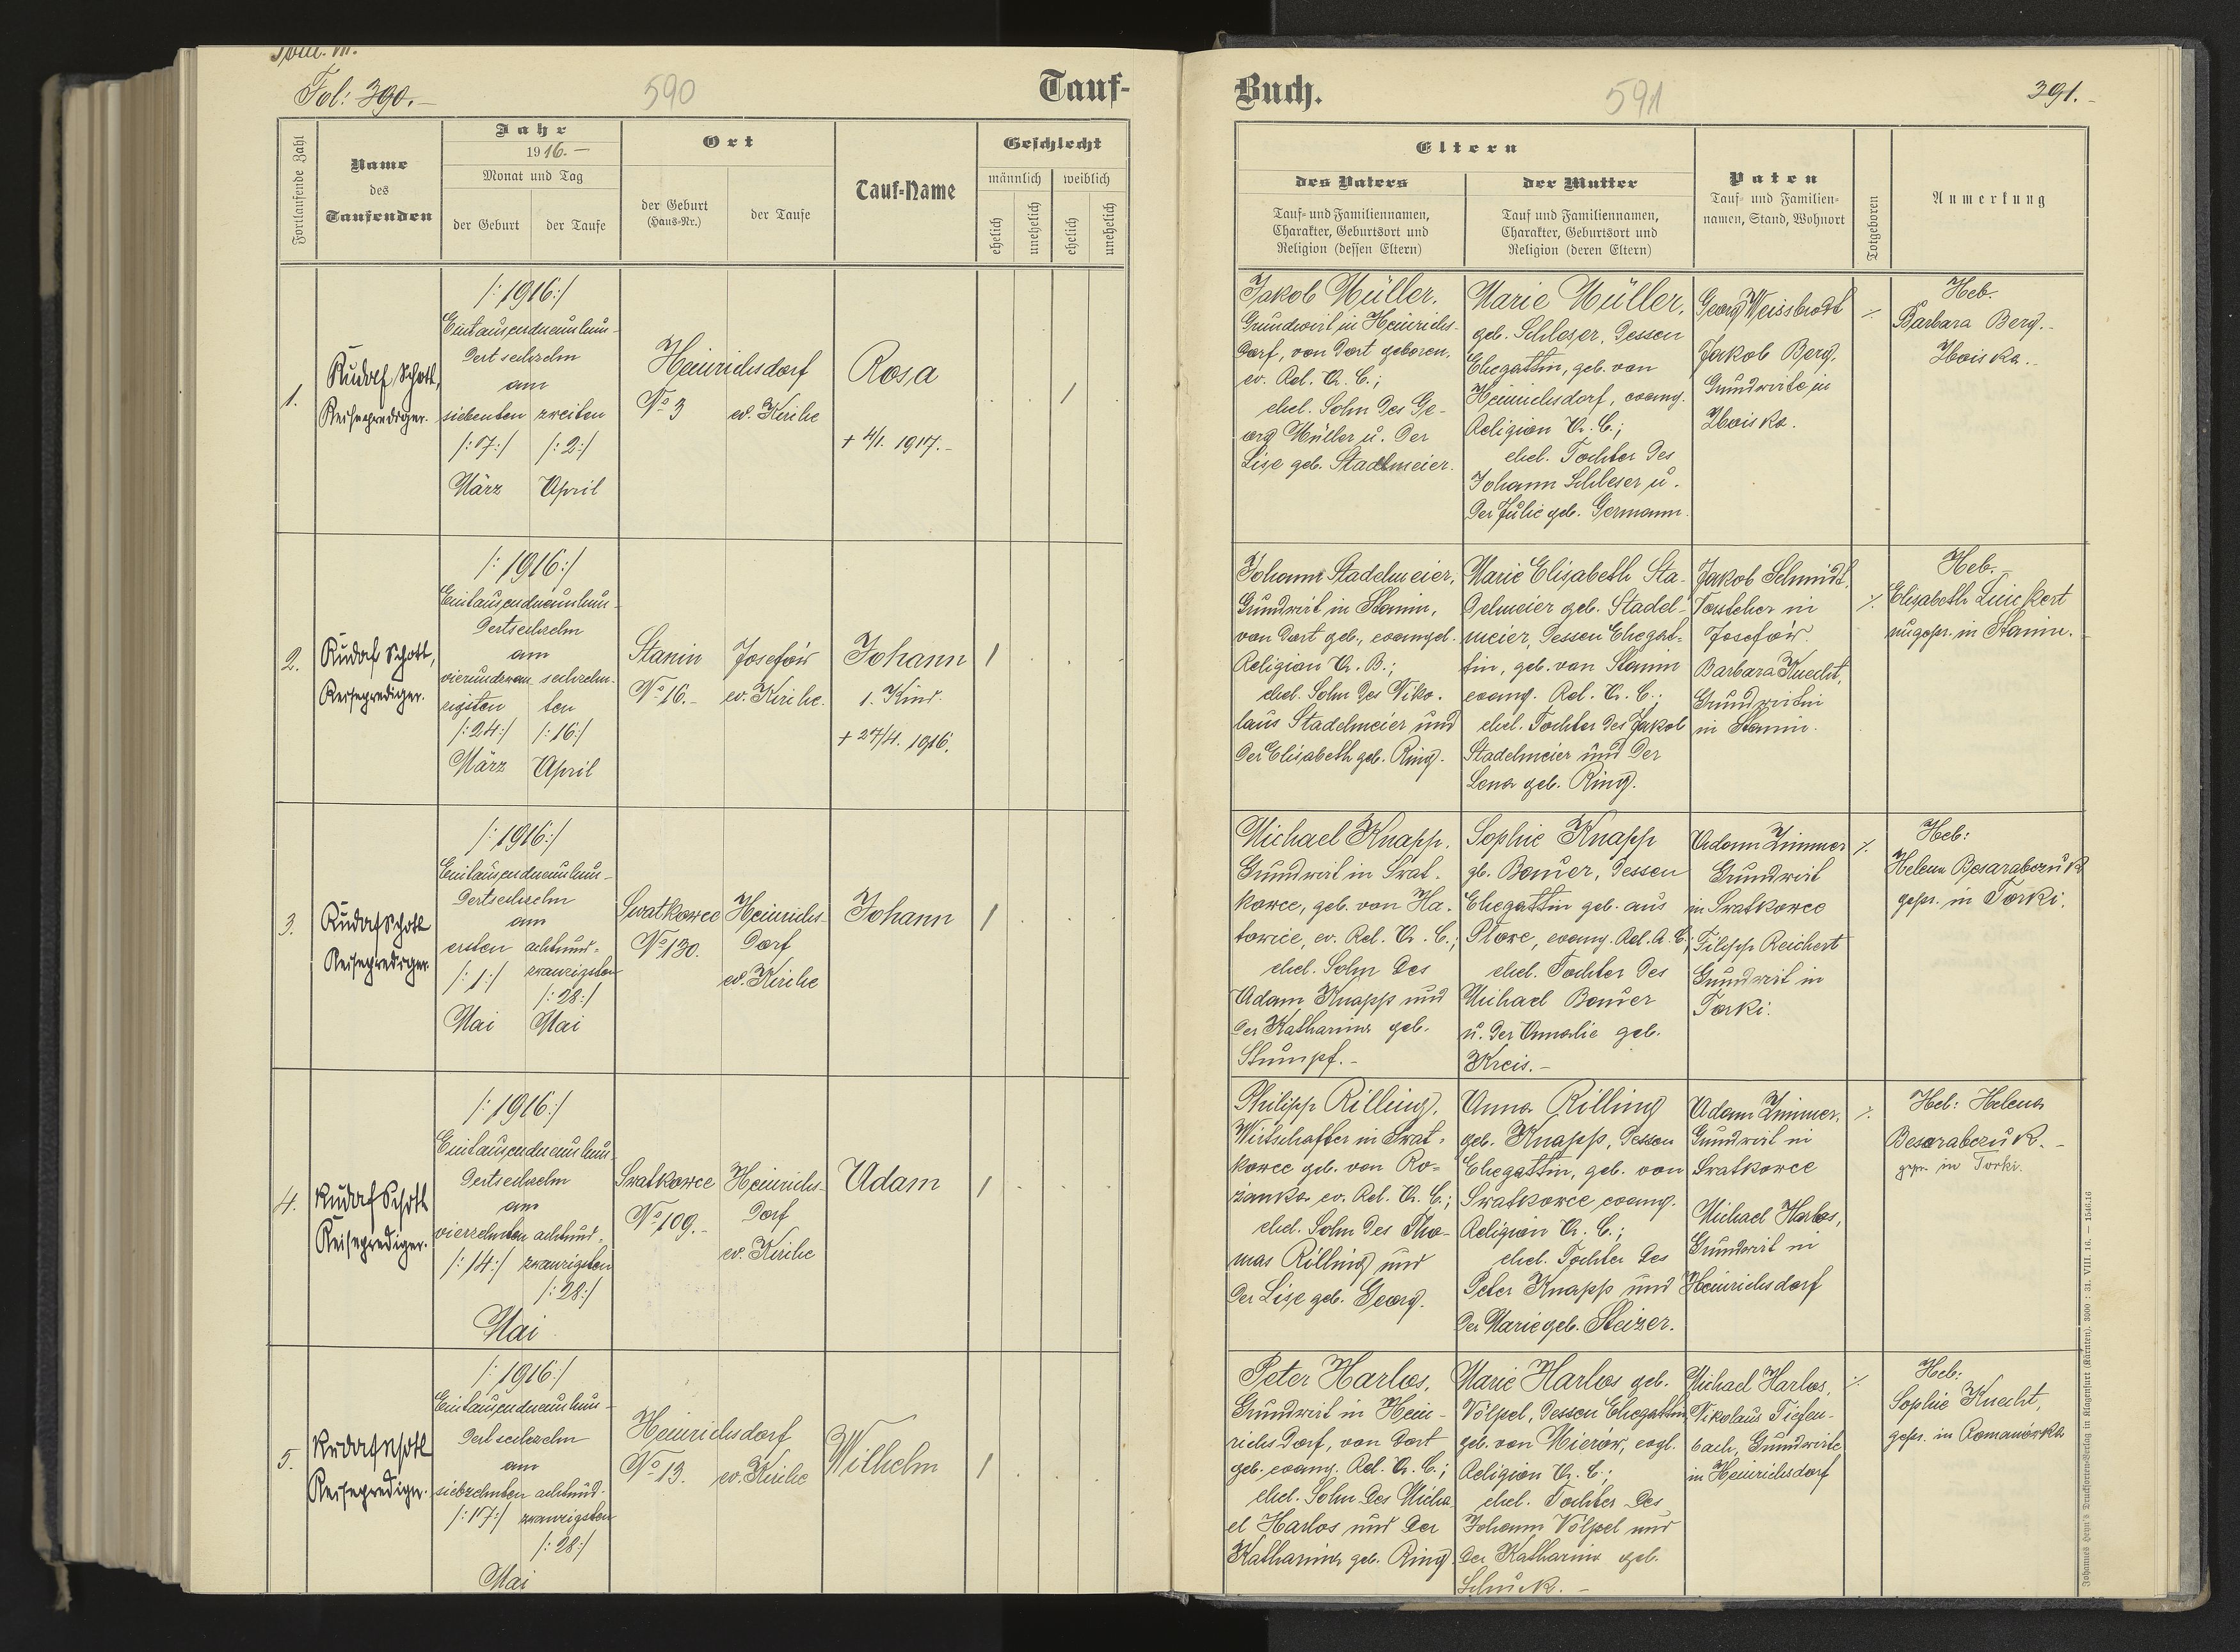 Tom. III.
Fol: 390.-
590
Tauf-
Fortlaufende Zahl
Name
des
Taufenden
Jahr
1916.-
Monat und Tag
der Geburt
der Taufe
Ort
der Geburt
(Haus-Nr.)
der Taufe
Tauf-Name
Geschlecht
männlich
weiblich
ehelich
unehelich
ehelich
unehelich
1.
Rudolf Schott,
Reiseprediger.
/:1916:/
Eintausendneunhun-
dertsechzehn
am
siebenten zweiten
/:17:/ /:2:/
März April
Heinrichsdorf
No 3 ev. Kirche
Rosa
+ 4/1. 1917.-
1
2.
Rudolf Schott,
Reiseprediger.
/:1916:/
Eintausendneunhun-
dertsechzehn
am
vierundzwan sechzehn-
zigsten ten
/:24:/ /:16:/
März April
Stanin Josefów
No 16.- ev. Kirche.
Johann
1. Kind.
+ 27/4. 1916.
1
3.
Rudolf Schott
Reiseprediger.
/:1916:/
Eintausendneunhun-
dertsechzehn
am
ersten achtund-
/:1:/ zwanzigsten
/:28:/
Mai Mai
Swatkowce Heinrichs-
No 130. dorf
ev. Kirche
Johann
1
4.
Rudolf Schott
Reiseprediger.
/:1916:/
Eintausendneunhun-
dertsechzehn
am
vierzehnten achtund-
/:14:/ zwanzigsten
/:28:/
Mai
Swatkowce Heinrichs-
No 109.- dorf
ev. Kirche
Adam
1
5.
Rudolf Schott
Reiseprediger.
/:1916:/
Eintausendneunhun-
dertsechzehn
am
siebzehnten achtund-
/:17:/ zwanzigsten
/:28:/
Mai
Heinrichsdorf
No 13. ev. Kirche
Wilhelm
1
Buch.
591
391.-
Eltern
des Vaters
Tauf- und Familiennamen,
Charakter, Geburtsort und
Religion (dessen Eltern)
der Mutter
Tauf und Familiennamen,
Charakter, Geburtsort und
Religion (deren Eltern)
Paten
Tauf- und Familien-
namen, Stand, Wohnort
Totgeboren
Anmerkung
Jakob Müller,
Grundwirt in Heinrichs-
dorf, von dort geboren,
ev. Rel. A. C.;
ehel. Sohn des Ge-
org Müller u. der
Lise geb. Stadelmeier.
Marie Müller,
geb. Schloser, dessen
Ehegattin, geb. von
Heinrichsdorf, evang.
Religion A. C.;
ehel. Tochter des
Johann Schleser u.
der Julie geb. Germann.
Georg Weissbrodt
Jakob Berg,
Grundwirte in
Zboiska.
%
Heb.
Barbara Berg.-
Zboiska.-
Johann Stadelmeier,
Grundwirt in Stanin,
von dort geb., evangel.
Religion A. B.;
ehel. Sohn des Niko-
laus Stadelmeier und
der Elisabeth geb. Ring.
Marie Elisabeth Sta-
delmeier geb. Stadel-
meier, dessen Ehegat-
tin, geb. von Stanin
evang. Rel. A. C.;
ehel. Tochter des Jakob
Stadelmeier und der
Lena geb. Ring.
Jakob Schmidt,
Vorsteher in
Josefów.
Barbara Knecht,
Grundwirtin
in Stanin.
%
Heb.-
Elisabeth Luickert
ungepr. in Stanin.
Michael Knapp,
Grundwirt in Swat-
kowce, geb. von Ha-
towice, ev. Rel. A. C.;
ehel. Sohn des
Adam Knapp und
der Katharina geb.
Stumpf.-
Sophie Knapp
gb. Bauer, dessen
Ehegattin geb. aus
Stove, evang. Rel. A. C.;
ehel. Tochter des
Michael Bauer
u. der Annalie geb.
Kreis.-
Adam Zimmer
Grundwirt
in Swatkowce
Filipp Reichert
Grundwirt in
Torki.
%
Heb:
Helena Besarabczuk
gepr. in Torki.
Philipp Rilling,
Wirtschafter in Swat-
kowce geb. von Ro-
zanka ev. Rel. A. C.;
ehel. Sohn des Tho-
mas Rilling und
der Lise geb. Georg.
Anna Rilling
geb. Knapp, dessen
Ehegattin, geb. von
Swatkowce evang.
Religion A. C.;
ehel. Tochter des
Peter Knapp und
der Marie geb. Steizer.
Adam Zimmer,
Grundwirt in
Swatkowce
Michael Harlos,
Grundwirt in
Heinrichsdorf
%
Heb: Helena
Besarabczuk.-
gepr. in Torki.
Peter Harlos,
Grundwirt in Hein-
richsdorf, von dort
geb. evang. Rel. A. C.;
ehel. Sohn des Micha
el Harlos und der
Katharina geb. Ring
Marie Harlos geb.
Völpel, dessen Ehegattin,
geb. von Mierów, evgl.
Religion A. C.;
ehel. Tochter des
Johann Völpel und
der Katharina geb.
Schuck.-
Michael Harlos,
Nikolaus Tiefen-
bach, Grundwirte
in Heinrichsdorf
%
Heb:
Sophie Knecht,
gepr. in Romanówka
Johannes Heyn's Drucksorten-Verlag in Klagenfurt (Kärnten). 3000 : 31. VIII. 16. — 1546.16